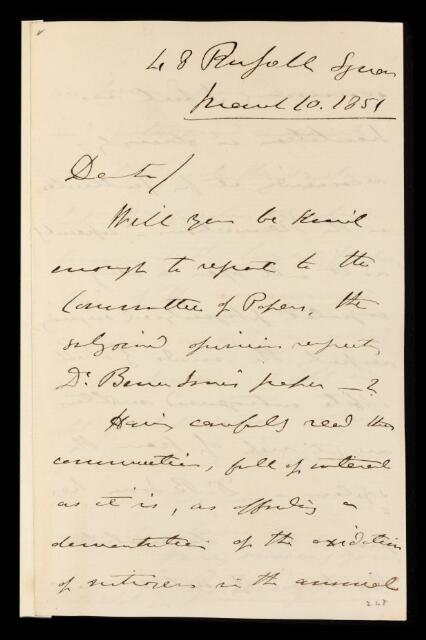 48 Russell Square
March 10. 1851
Dear Sir/
Will you be kind
enough to report to the
Committee of Papers, the
subjoined opinion respecting
Dr. Bence Jones's paper —?
Having carefully read this
communication, full of interest
as it is, as affording a
demonstration of the oxidation
of nitrogen in the animal
248